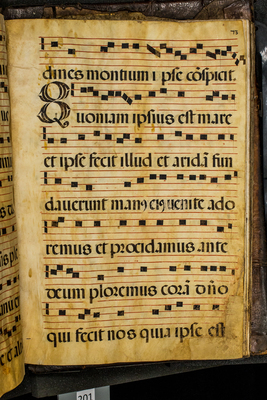 dines montium ipse cõspicit.
Quoniam ipsius est mare
et ipse fecit illud et aridã fun
daverunt manꝰ eiꝰ venite ado
remus et procidamus ante
deum ploremus corã dño
qui fecit nos quia ipse est
201